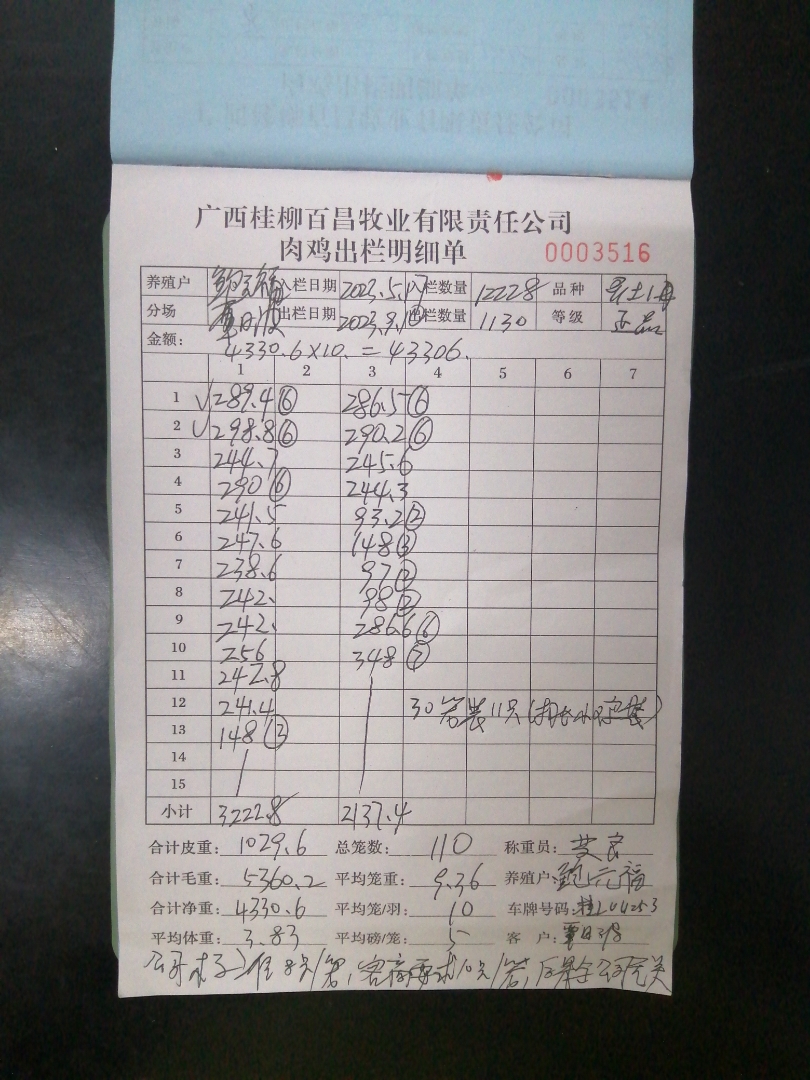 广西桂柳百昌牧业有限责任公司
肉鸡出栏明细单 0003516
养殖户 入栏日期 2023.5.17 入栏数量 12228 品种
分场 出栏日期 2023.9.10 出栏数量 1130 等级 正品
金额: 4330.6×10.=43306.
1 2 3 4 5 6 7
1 √289.4⑥ 286.5⑥
2 √298.8⑥ 290.2⑥
3 244.7 245.6
4 290⑥ 244.3
5 241.5 93.2②
6 247.6 148③
7 238.6 97②
8 242. 98②
9 242. 286.6⑥
10 256 348⑦
11 242.8
12 241.4 30笼装11只
13 148③
14
15
小计 3222.8 2137.4
合计皮重: 1029.6 总笼数: 110 称重员:
合计毛重: 5360.2 平均笼重: 9.36 养殖户: 鲍元福
合计净重: 4330.6 平均笼/羽: 10 车牌号码: 桂L04253
平均体重: 3.83 平均磅/笼: 5 客 户:
8只/笼,客商要求10只/笼,后果与公司无关